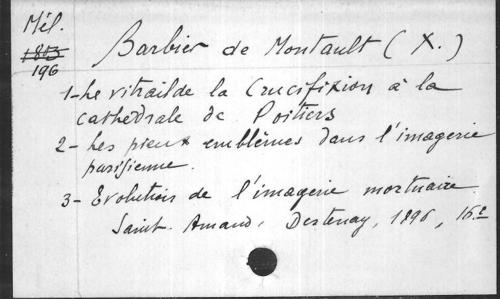 Mél.
1813
196
Barbier de Montault (X.)
1- Le vitrail de la Crucifixion à la
cathédrale de Poitiers
2- Les pieux emblèmes dans l'imagerie
parisienne.
3- Evolution de l'imagerie mortuaire
Saint-Amand, Destenay, 1896, 16°